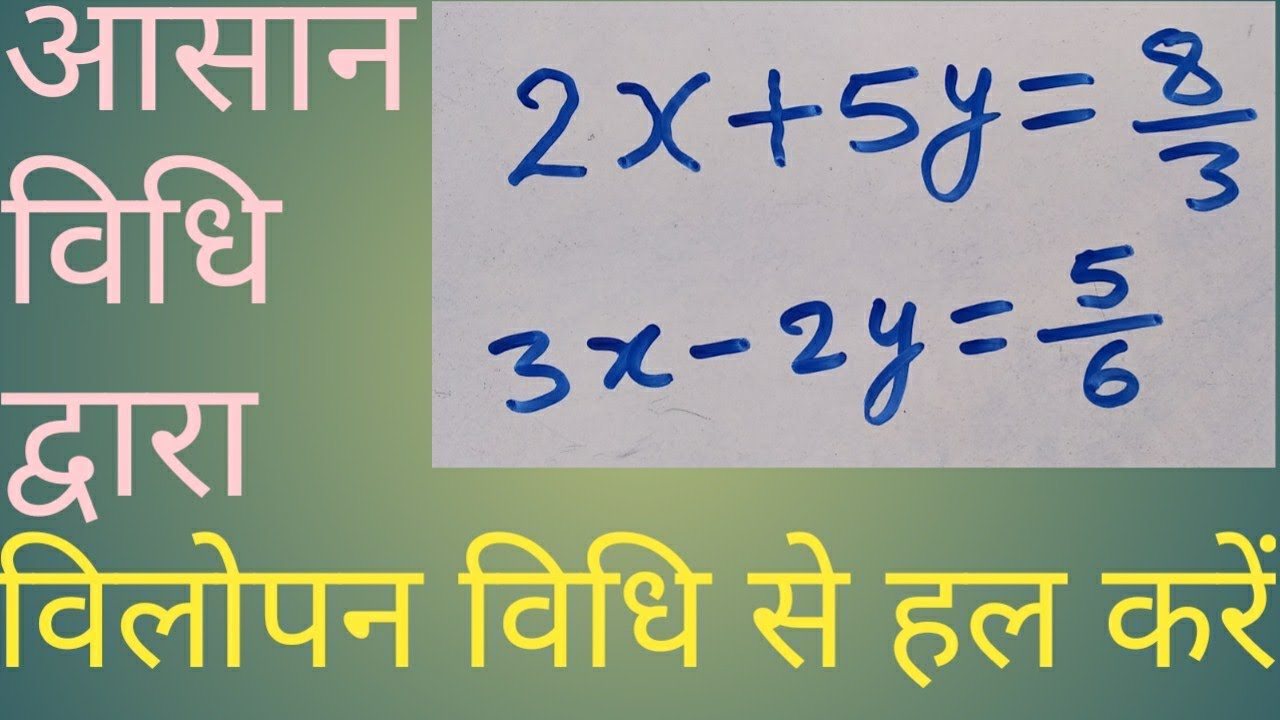 आसान
विधि
द्वारा
2x+5y=8/3
3x-2y=5/6
विलोपन विधि से हल करें